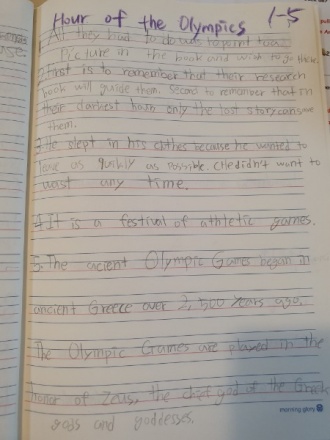 Hour of the Olympics 1-5
1. All they had to do was to point to a
picture in the book and wish to go there.
2. First is to remember that their research
book will guide them. Second to remember that in
their darkest hour only the lost story can save
them.
3. He slept in his clothes because he wanted to
leave as quikly as possible. didn't want to
wast any time.
4. It is a festival of athletic games.
5. The acient Olympic Games began in
ancient Greece over 2,500 years ago.
The Olympic Games are played in the
honor of Zeus, the chief god of the Greek
gods and goddesses.
morning glory